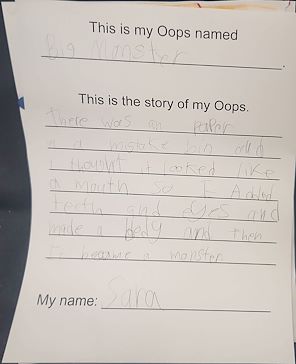 This is my Oops named
Big Monster.
This is the story of my Oops.
there was an paper
a mistake and
I thought it looked like
a mouth so I Added
teeth and eyes and
made a body and then
it became a monster
My name: Sara